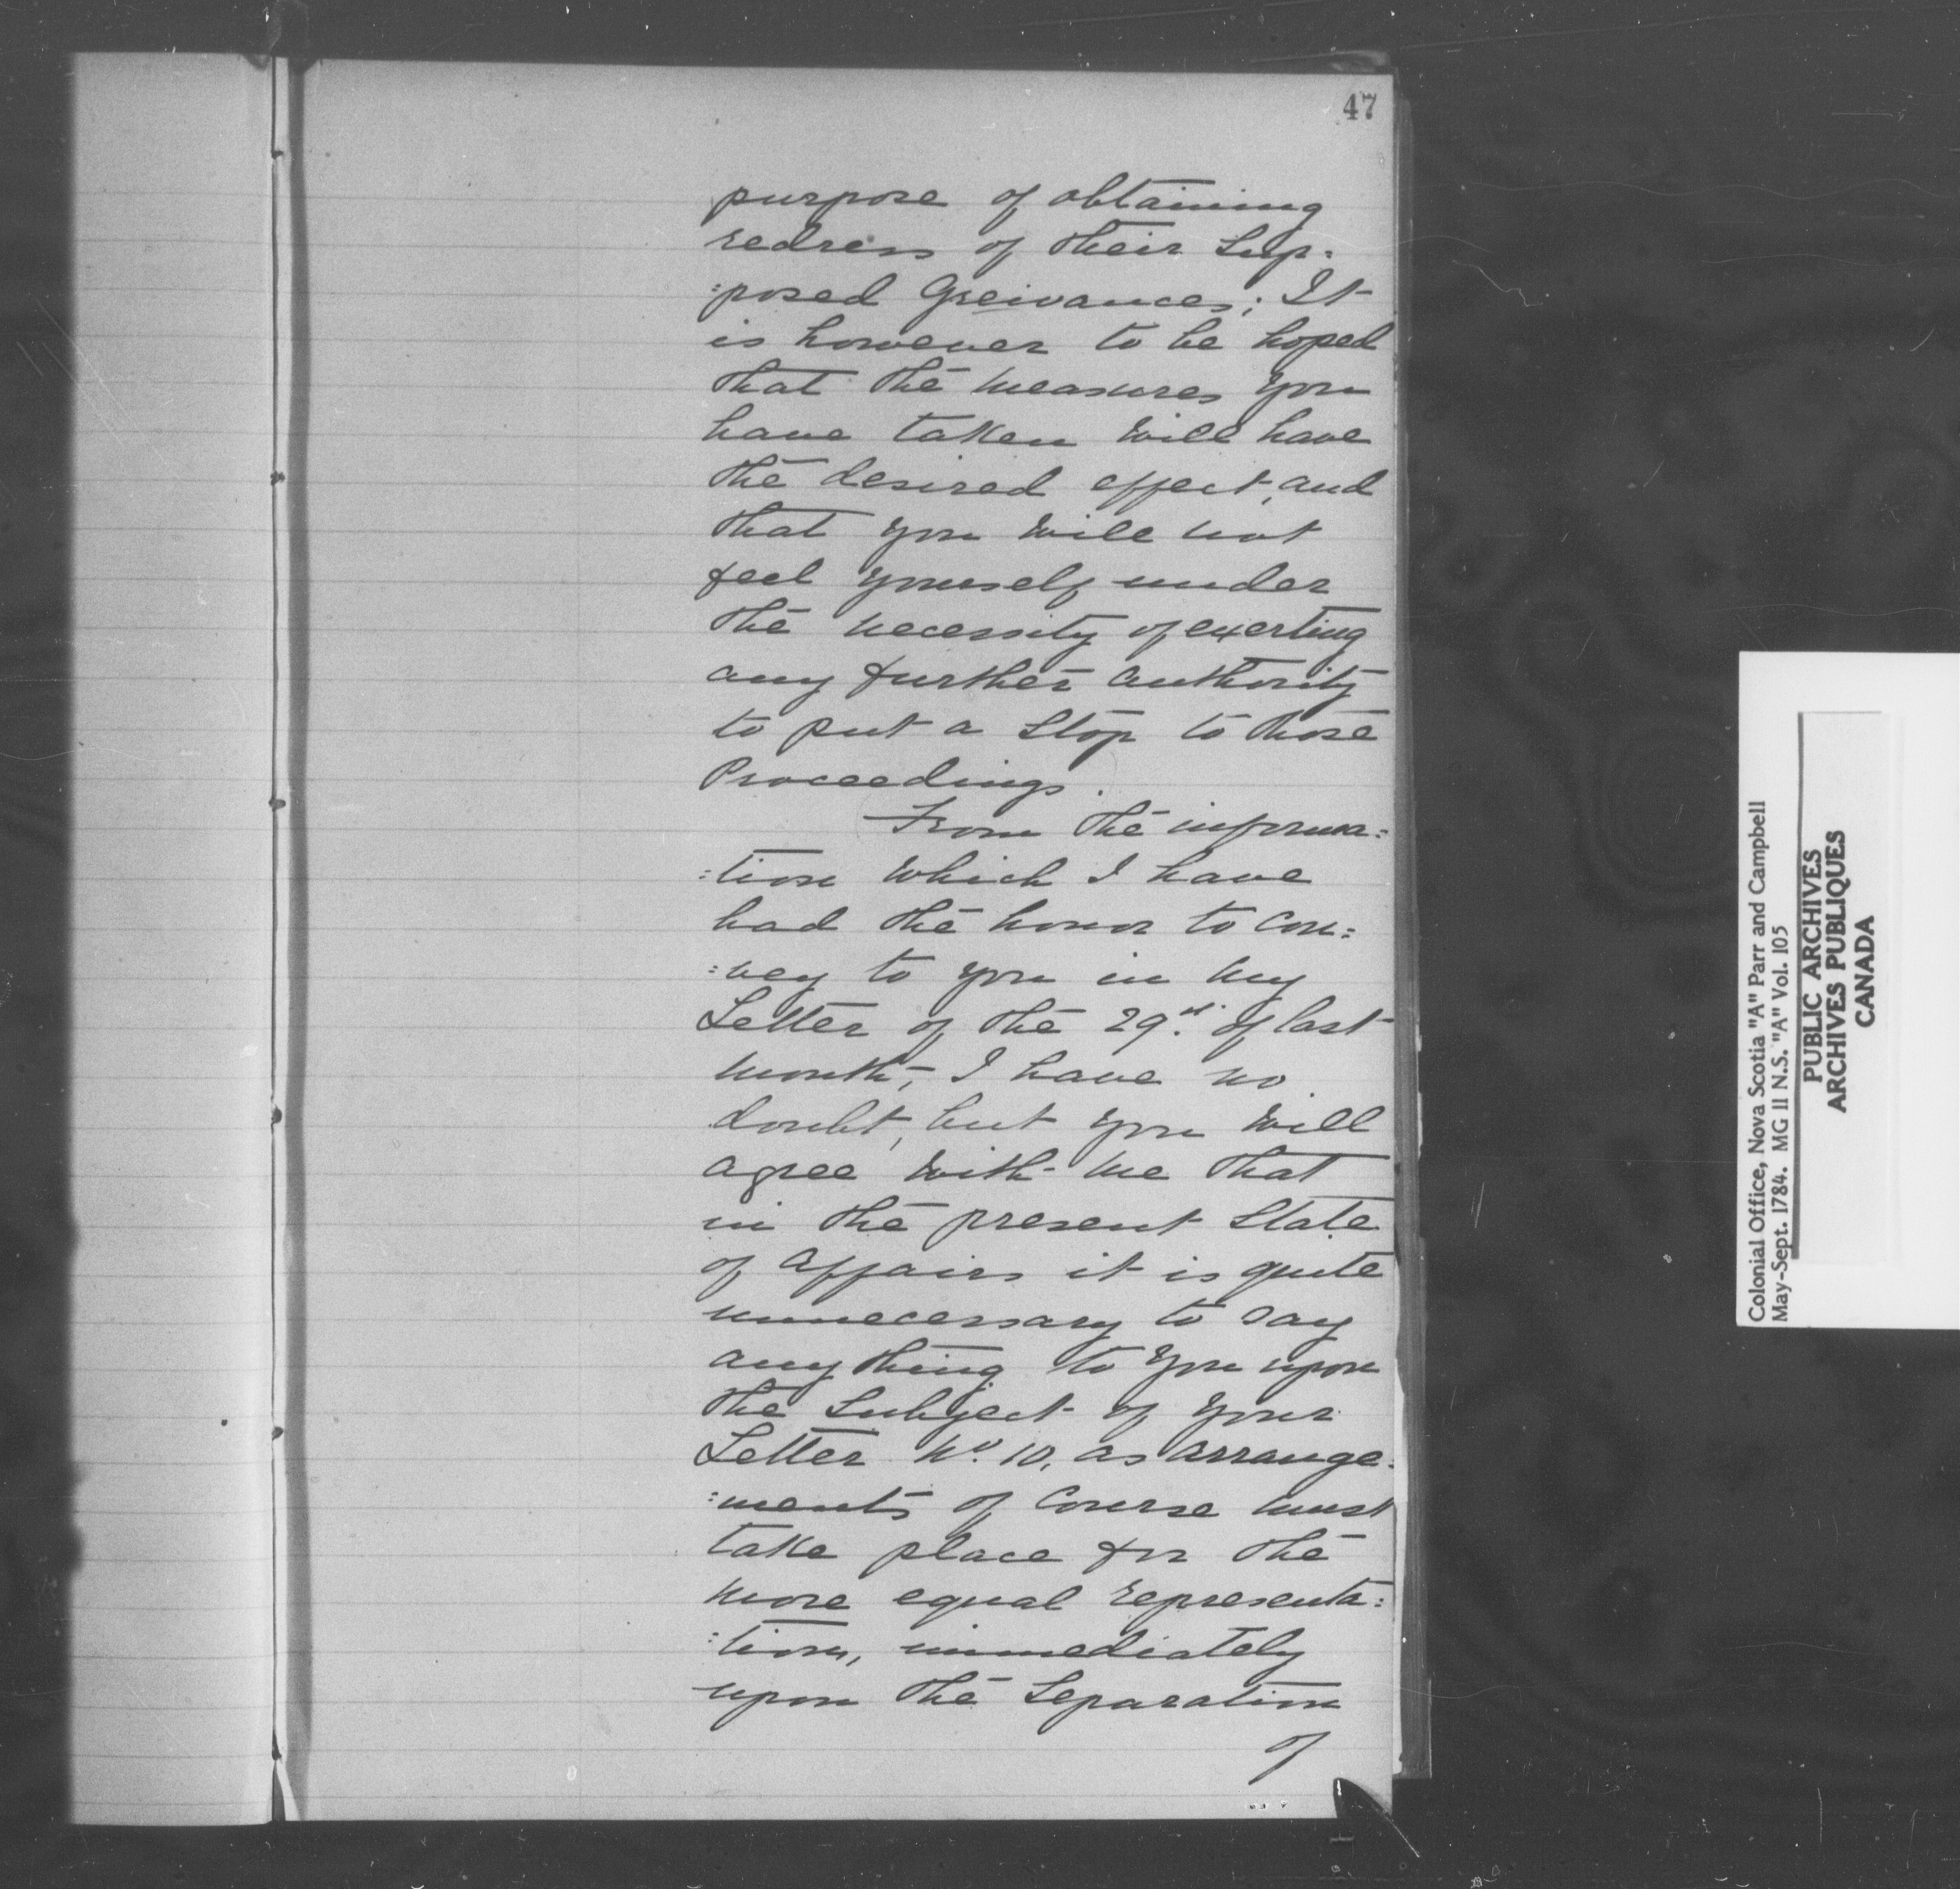 47
purpose of obtaining
redress of their Sup=
=posed Greivances; It
is however to be hoped
that the measures you
have taken will have
the desired effect, and
that you will not
feel yourself under
the necessity of exerting
any further authority
to put a Stop to those
Proceedings.
From the informa=
=tion which I have
had the honor to con=
=vey to you in my
Letter of the 29th. of last
month, I have no
doubt, but you will
agree with me that
in the present State
of affairs it is quite
unnecessary to say
any thing to you upon
the Subject of your
Letter No. 10, as arrange=
=ments of Course must
take place for the
more equal representa=
=tion, immediately
upon the Separation
of
Colonial Office, Nova Scotia "A" Parr and Campbell
May-Sept. 1784. MG 11 N.S. "A" Vol. 105
PUBLIC ARCHIVES
ARCHIVES PUBLIQUES
CANADA